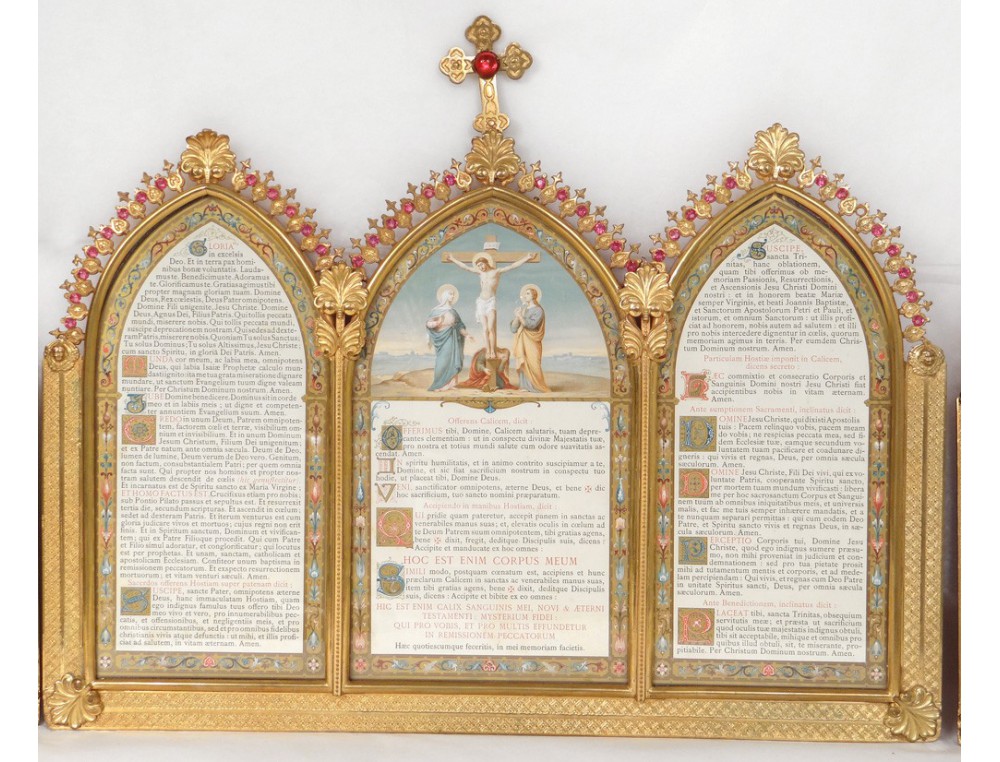 GLORIA
in excelsis
Deo. Et in terra pax homi-
nibus bonæ voluntatis. Lauda-
mus te. Benedicimus te. Adoramus
te. Glorificamus te. Gratias agimus tibi
propter magnam gloriam tuam. Domine
Deus, Rex cœlestis, Deus Pater omnipotens.
Domine Fili unigenite, Jesu Christe. Domine
Deus, Agnus Dei, Filius Patris. Qui tollis peccata
mundi, miserere nobis. Qui tollis peccata mundi,
suscipe deprecationem nostram. Qui sedes ad dexte-
ram Patris, miserere nobis. Quoniam Tu solus Sanctus
Tu solus Dominus; Tu solus Altissimus, Jesu Christe,
cum sancto Spiritu, in gloriâ Dei Patris. Amen.
MUNDA cor meum, ac labia mea, omnipotens
Deus, qui labia Isaiæ Prophetæ calculo mun-
dasti ignito: ita me tua grata miseratione dignare
mundare, ut sanctum Evangelium tuum digne valeam
nuntiare. Per Christum Dominum nostrum. Amen.
JUBE Domne benedicere. Dominus sit in corde
meo et in labiis meis; ut digne et competen-
ter annuntiem Evangelium suum. Amen.
CREDO in unum Deum, Patrem omnipoten-
tem, factorem cœli et terræ, visibilium om-
nium et invisibilium. Et in unum Dominum
Jesum Christum, Filium Dei unigenitum;
et ex Patre natum ante omnia sæcula. Deum de Deo,
lumen de lumine, Deum verum de Deo vero. Genitum,
non factum, consubstantialem Patri; per quem omnia
facta sunt. Qui propter nos homines et propter nos-
tram salutem descendit de cœlis hic genuflectitur.
Et incarnatus est de Spiritu sancto ex Maria Virgine;
ET HOMO FACTUS EST. Crucifixus etiam pro nobis,
sub Pontio Pilato passus et sepultus est. Et resurrexit
tertia die, secundum scripturas. Et ascendit in cœlum;
sedet ad dexteram Patris. Et iterum venturus est cum
gloria judicare vivos et mortuos; cujus regni non erit
finis. Et in Spiritum sanctum, Dominum et vivifican-
tem; qui ex Patre Filioque procedit. Qui cum Patre
et Filio simul adoratur, et conglorificatur; qui locutus
est per prophetas. Et unam, sanctam, catholicam et
apostolicam Ecclesiam. Confiteor unum baptisma in
remissionem peccatorum. Et exspecto resurrectionem
mortuorum; et vitam venturi sæculi. Amen.
Sacerdos offerens Hostiam super patenam dicit:
SUSCIPE, sancte Pater, omnipotens æterne
Deus, hanc immaculatam Hostiam, quam
ego indignus famulus tuus offero tibi Deo
meo vivo et vero, pro innumerabilibus pec-
catis, et offensionibus, et negligentiis meis, et pro
omnibus circumstantibus, sed et pro omnibus fidelibus
christianis vivis atque defunctis: ut mihi, et illis profi-
ciat ad salutem, in vitam æternam. Amen.
Offerens Calicem, dicit:
OFFERIMUS tibi, Domine, Calicem salutaris, tuam depre-
cantes clementiam: ut in conspectu divinæ Majestatis tuæ,
pro nostra et totius mundi salute cum odore suavitatis as-
cendat. Amen.
IN spiritu humilitatis, et in animo contrito suscipiamur a te,
Domine, et sic fiat sacrificium nostrum in conspectu tuo
hodie, ut placeat tibi, Domine Deus.
VENI, sanctificator omnipotens, æterne Deus, et bene ✠ dic
hoc sacrificium, tuo sancto nomini præparatum.
Accipiendo in manibus Hostiam, dicit:
QUI pridie quam pateretur, accepit panem in sanctas ac
venerabiles manus suas; et, elevatis oculis in cœlum ad
te Deum Patrem suum omnipotentem, tibi gratias agens,
bene ✠ dixit, fregit, deditque Discipulis suis, dicens:
Accipite et manducate ex hoc omnes:
HOC EST ENIM CORPUS MEUM
SIMILI modo, postquam cœnatum est, accipiens et hunc
præclarum Calicem in sanctas ac venerabiles manus suas,
item tibi gratias agens, bene ✠ dixit, deditque Discipulis
suis, dicens: Accipite et bibite ex eo omnes:
HIC EST ENIM CALIX SANGUINIS MEI, NOVI & ÆTERNI
TESTAMENTI: MYSTERIUM FIDEI:
QUI PRO VOBIS, ET PRO MULTIS EFFUNDETUR
IN REMISSIONEM PECCATORUM
Hæc quotiescumque feceritis, in mei memoriam facietis.
SUSCIPE,
sancta Tri-
nitas, hanc oblationem,
quam tibi offerimus ob me-
moriam Passionis, Resurrectionis,
et Ascensionis Jesu Christi Domini
nostri: et in honorem beatæ Mariæ
semper Virginis, et beati Joannis Baptistæ,
et Sanctorum Apostolorum Petri et Pauli, et
istorum, et omnium Sanctorum: ut illis profi-
ciat ad honorem, nobis autem ad salutem: et illi
pro nobis intercedere dignentur in cœlis, quorum
memoriam agimus in terris. Per eumdem Chris-
tum Dominum nostrum. Amen.
Particulam Hostiæ imponit in Calicem,
dicens secreto:
HÆC commixtio et consecratio Corporis et
Sanguinis Domini nostri Jesu Christi fiat
accipientibus nobis in vitam æternam.
Amen.
Ante sumptionem Sacramenti, inclinatus dicit:
DOMINE Jesu Christe, qui dixisti Apostolis
tuis: Pacem relinquo vobis, pacem meam
do vobis; ne respicias peccata mea, sed fi-
dem Ecclesiæ tuæ, eamque secundum vo-
luntatem tuam pacificare et coadunare di-
gneris: qui vivis et regnas, Deus, per omnia sæcula
sæculorum. Amen.
DOMINE Jesu Christe, Fili Dei vivi, qui ex vo-
luntate Patris, cooperante Spiritu sancto,
per mortem tuam mundum vivificasti; libera
me per hoc sacrosanctum Corpus et Sangui-
nem tuum ab omnibus iniquitatibus meis, et universis
malis, et fac me tuis semper inhærere mandatis, et a
te nunquam separari permittas: qui cum eodem Deo
Patre, et Spiritu sancto vivis et regnas Deus, in sæcu-
la sæculorum. Amen.
PERCEPTIO Corporis tui, Domine Jesu
Christe, quod ego indignus sumere præsu-
mo, non mihi proveniat in judicium et con-
demnationem: sed pro tua pietate prosit
mihi ad tutamentum mentis et corporis, et ad mede-
lam percipiendam: Qui vivis, et regnas cum Deo Patre
in unitate Spiritus sancti Deus, per omnia sæcula
sæculorum. Amen.
Ante Benedictionem, inclinatus dicit:
PLACEAT tibi, sancta Trinitas, obsequium
servitutis meæ; et præsta ut sacrificium
quod oculis tuæ majestatis indignus obtuli,
tibi sit acceptabile, mihique et omnibus pro
quibus illud obtuli, sit, te miserante, pro-
pitiabile. Per Christum Dominum nostrum. Amen.